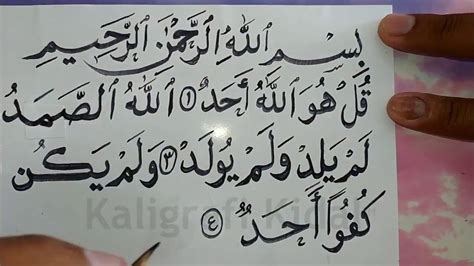 بِسْمِ ٱللَّهِ ٱلرَّحْمَٰنِ ٱلرَّحِيمِ
قُلْ هُوَ ٱللَّهُ أَحَدٌ ١ ٱللَّهُ ٱلصَّمَدُ
لَمْ يَلِدْ وَلَمْ يُولَدْ ٣ وَلَمْ يَكُن
كُفُوًا أَحَدٌ ٤
Kaligrafi